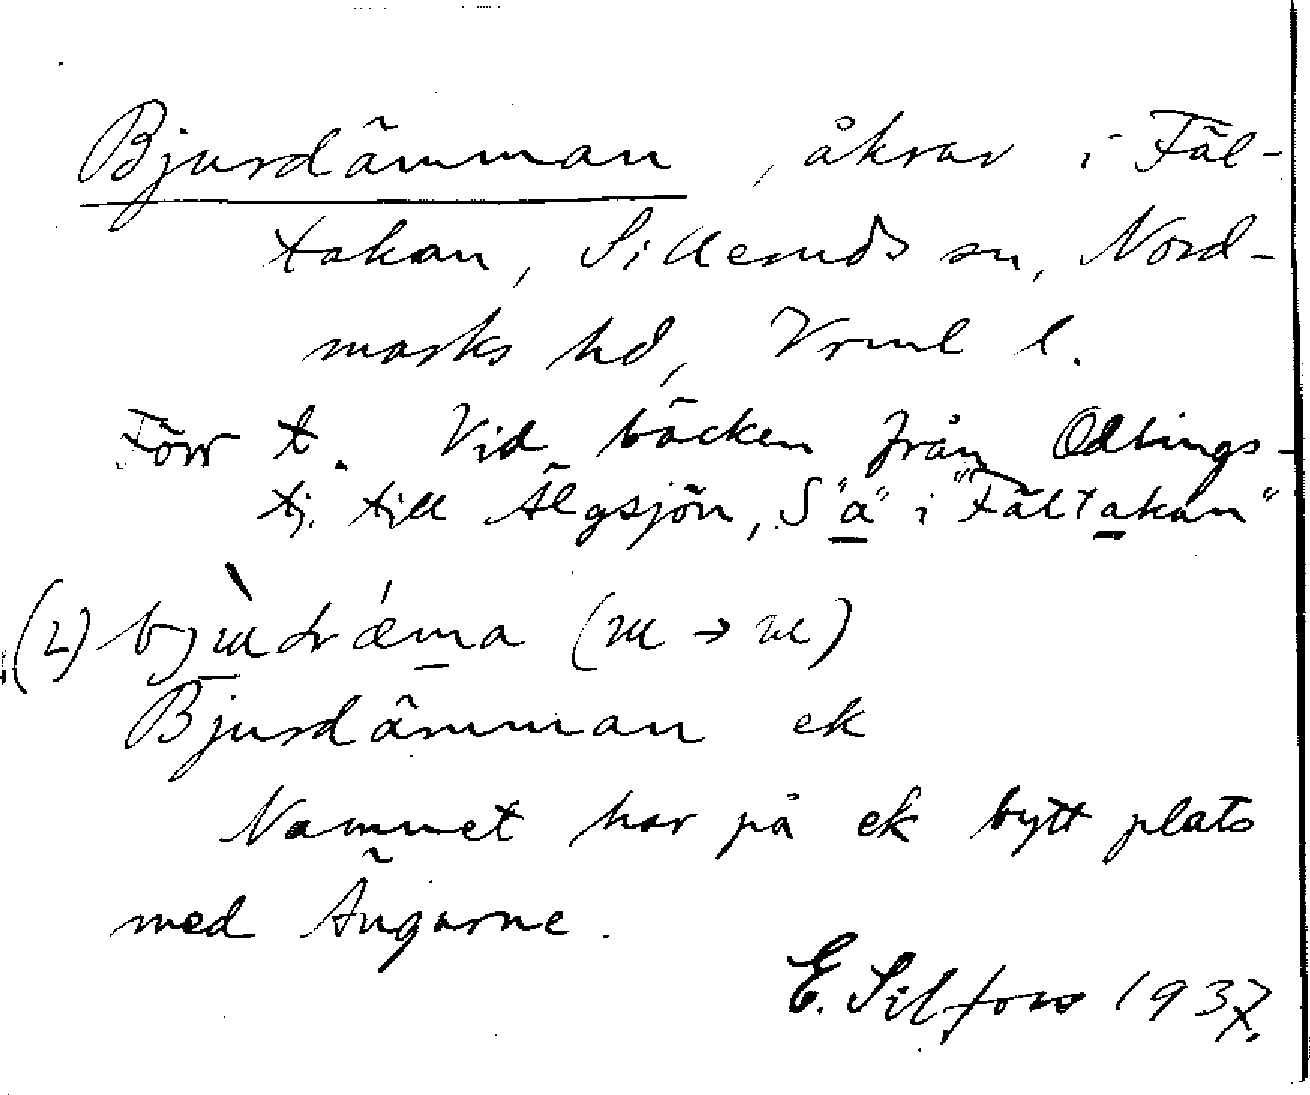 Bjurdämman, åkrar i Fäl-
takan, Silleruds sn, Nord-
marks hd, Vrml l.
Förr t. Vid bäcken från Odlings-
tj. till Älgsjön, S "a" i "Fältakan"
(2)
Bjurdämman ek
Namnet har på ek bytt plats
med Ängarne.
E. Silfors 1937.